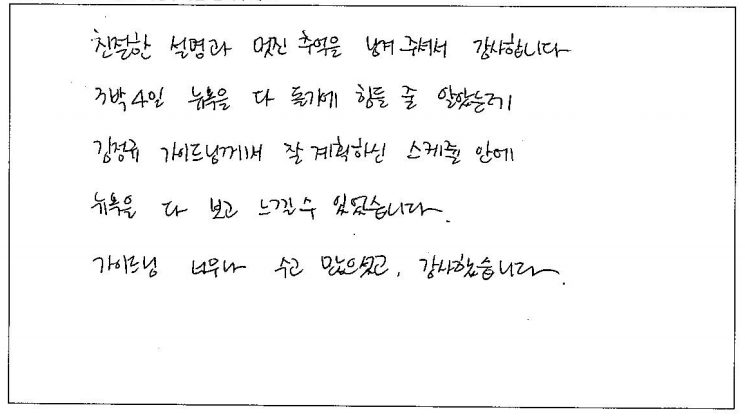 친절한 설명과 멋진 추억을 남겨 주셔서 감사합니다
3박 4일 뉴욕을 다 돌기에 힘들 줄 알았는데
김정규 가이드님께서 잘 계획하신 스케줄 안에
뉴욕을 다 보고 느낄 수 있었습니다.
가이드님 너무나 수고 많으셨고, 감사했습니다.